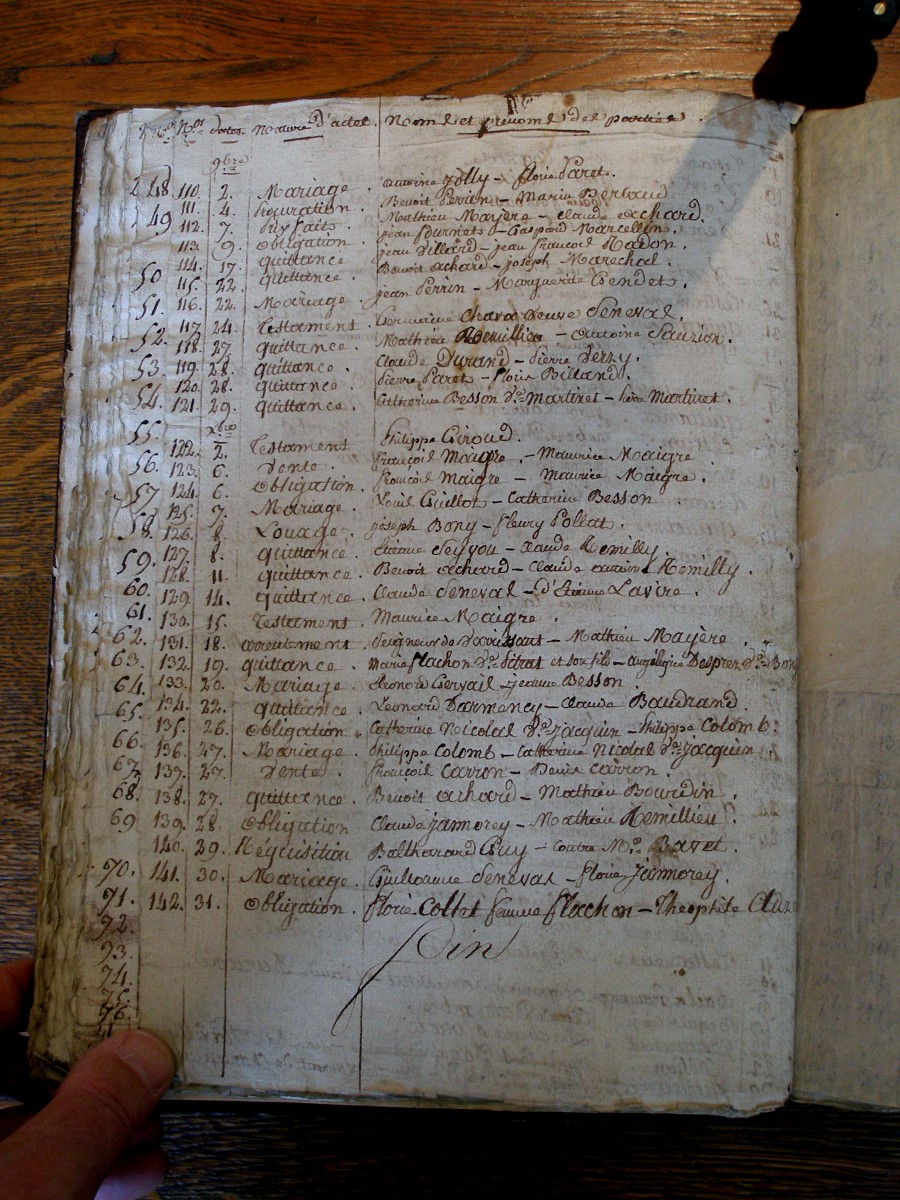 Nos. dates. Nature d'actes. Noms et prenoms des parties.
9bre
248 110. 2. Mariage. Antoine Jolly - florie Paret.
111. 4. Benoit Perrin - Marie Berlaud
49 112. 7. Prix faits. jean fournets - Gaspard Marcellin.
113. 9. Obligation. jean Villard - jean françois Nadon.
114. 17. quittance Benoit achard - joseph Marechal.
50 115. 22. quittance.
51. 116. 22. Mariage. jean Perrin - Marguerite Gendets.
52. 117. 24. Testament. Germaine veuve Seneval.
118. 27 quittance. Mathieu Remillieu - antoine Sauzion.
53. 119. 28. quittance. Claude Durand - Pierre
120. 28. quittance. Pierre Paret - floris Billand.
54. 121. 29. quittance. Catherine Besson de Martinet - Martinet.
55. xbre
122. 2. Testament Philippe Giroud.
56. 123. 6. Vente. françois Maigre. - Maurice Maigre.
124. 6. Obligation. françois Maigre - Maurice Maigre.
57. 125. 7. Mariage. Louis Guillot - Catherine Besson
58. 126. 8. Louage. joseph Bony - fleury Pollat.
127. 8. quittance. Etienne Seyvou - Claude Remilly.
59. 128. 11. quittance. Benoit achard - Claude antoine Remilly.
60. 129. 14. quittance. Claude Seneval - d'Etienne Lavire.
61. 130. 15. Testament. Maurice Maigre.
62. 131. 18. Seigneur de - Mathieu Mayère.
63. 132. 19. quittance. Marie flachon et son fils - angelique Desprez
64. 133. 20. Mariage. Leonard Gervais - jeanne Besson
65. 134. 22. quittance. Leonard Darmency - Claude Baudrand.
135. 26. Obligation. Catherine Nicolas de Jacquin - Philippe Colomb.
66. 136. 27. Mariage. Philippe Colomb - Catherine Nicolas de Jacquin
67. 137. 27. Vente. françois Carron - Denis Carron.
68. 138. 27. quittance. Benoit achard - Mathieu Bourdin.
69 139. 28. Obligation Claude jamorey - Mathieu Remillieu.
140. 29. Réquisition Balthazard Guy - contre Me. Bavet.
70. 141. 30. Mariage. Guillaume Seneval - florie Jamorey.
71. 142. 31. Obligation. florie Collet femme flachon - Theophile
72.
fin
73.
74.
75.
76.